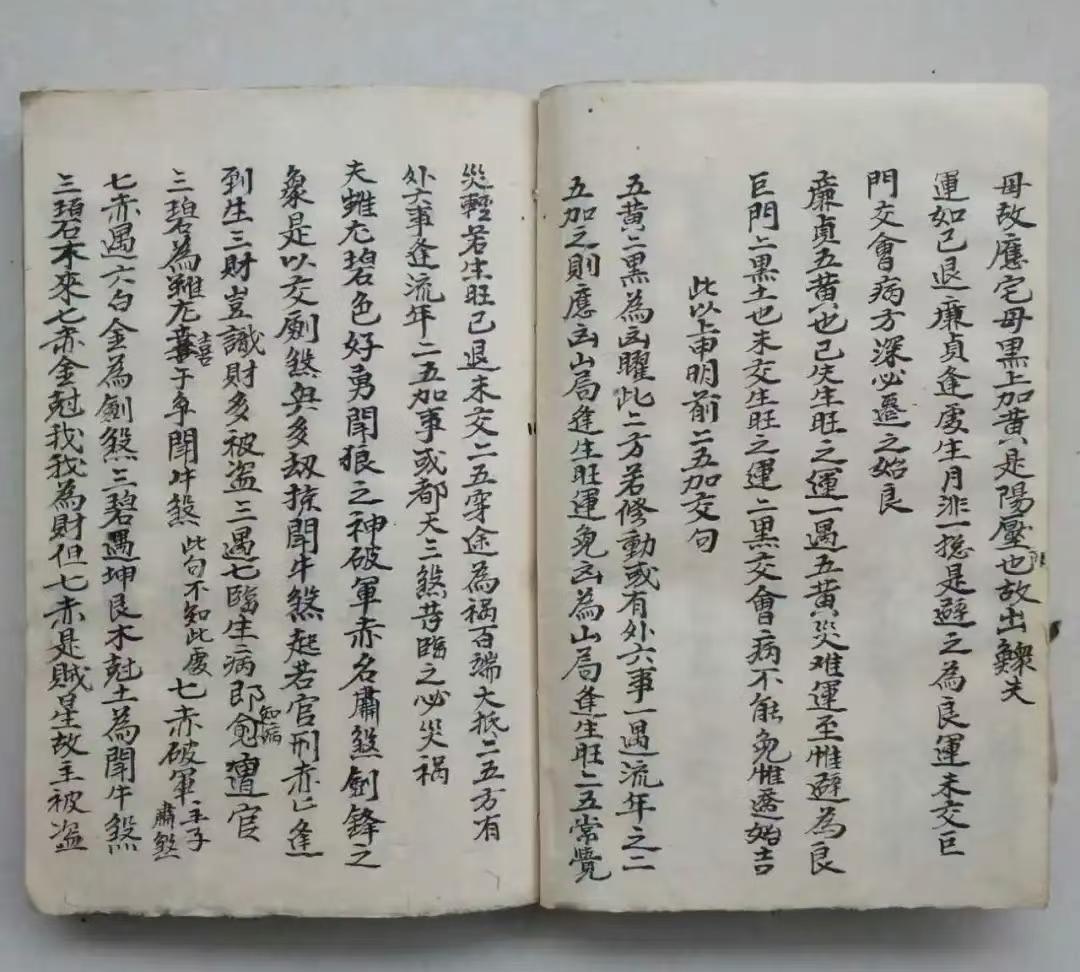 母故應宅母黑上加黃是陽壓也故出鰥夫
運如已退廉貞逢處生月非一揔是避之為良運未交巨
門交會病方深必遷之始良
廉貞五黃也已失生旺之運一遇五黃災难運至惟避為良
巨門二黑土也未交生旺之運二黑交會病不能免惟遷始吉
此以上申明前二五加交句
五黃二黑為凶曜此二方若修動或有外六事一遇流年之二
五加之則應凶山局逢生旺運免凶為山局逢生旺二五常覺
災輕若生旺已退未交二五穿途為禍百端大抵二五方有
外六事逢流年二五加事或都天三煞荨臨之必災禍
夫蚩尤碧色好勇鬥狼之神破軍赤名肅煞劍鋒之
象是以交劍煞興多劫掠鬥牛煞起若官刑赤亡逢
到生三財豈識財多被盜三遇七臨生病即愈遭官
知病
三碧為蚩尤喜于争鬥牛煞 此句不知此處 七赤破軍主子肅煞
喜
七赤遇六白金為劍煞三碧遇坤艮木尅土為鬥牛煞
三碧木來七赤金尅我我為財但七赤是贼星故主被盜